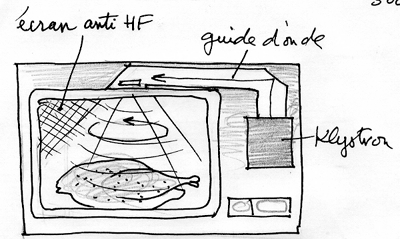 écran anti HF
guide d'onde
Klystron